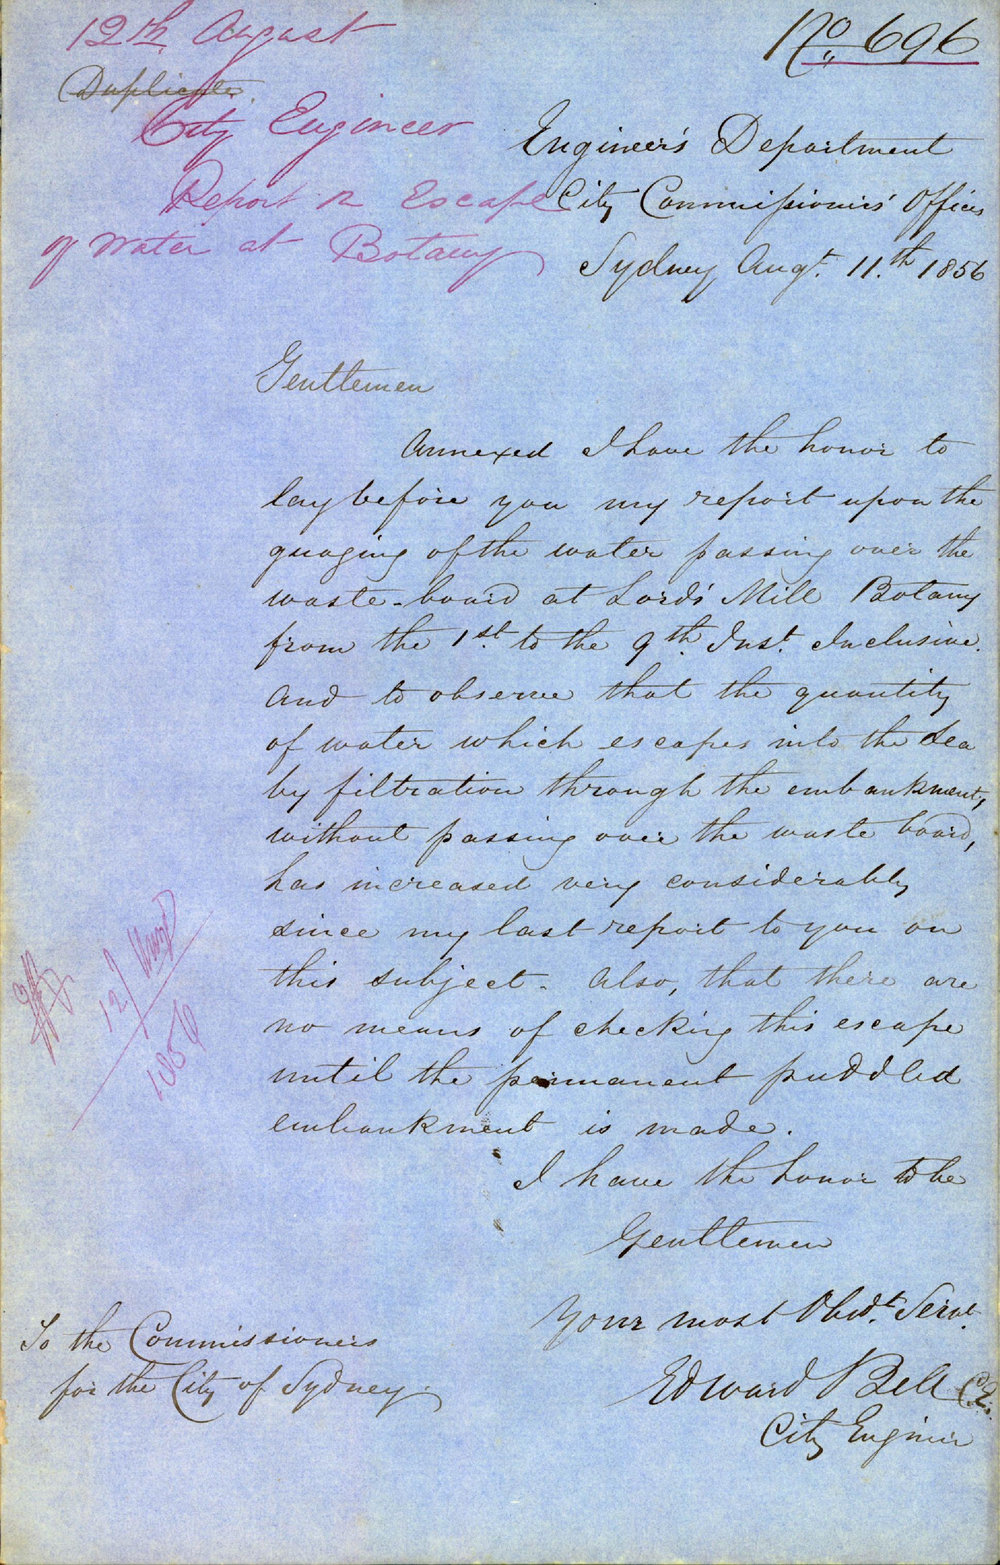 12th August
No 696
Duplicate
City Engineer
Report re Escape
of Water at Botany
Engineer's Department
City Commissioners' Offices
Sydney Augt. 11.th 1856
Gentlemen
Annexed I have the honor to
lay before you my report upon the
guaging of the water passing over the
waste-board at Lords' Mill Botany
from the 1st. to the 9th. Inst. Inclusive.
And to observe that the quantity
of water which escapes into the Sea
by filtration through the embankment,
without passing over the waste board,
has increased very considerably
since my last report to you on
this subject. Also, that there are
no means of checking this escape
until the permanent puddled
embankment is made.
12/ Augt
1856
I have the honor to be
Gentlemen
Your most Obedt. Servt.
Edward Bell C.E.
City Engineer
To the Commissioners
for the City of Sydney.